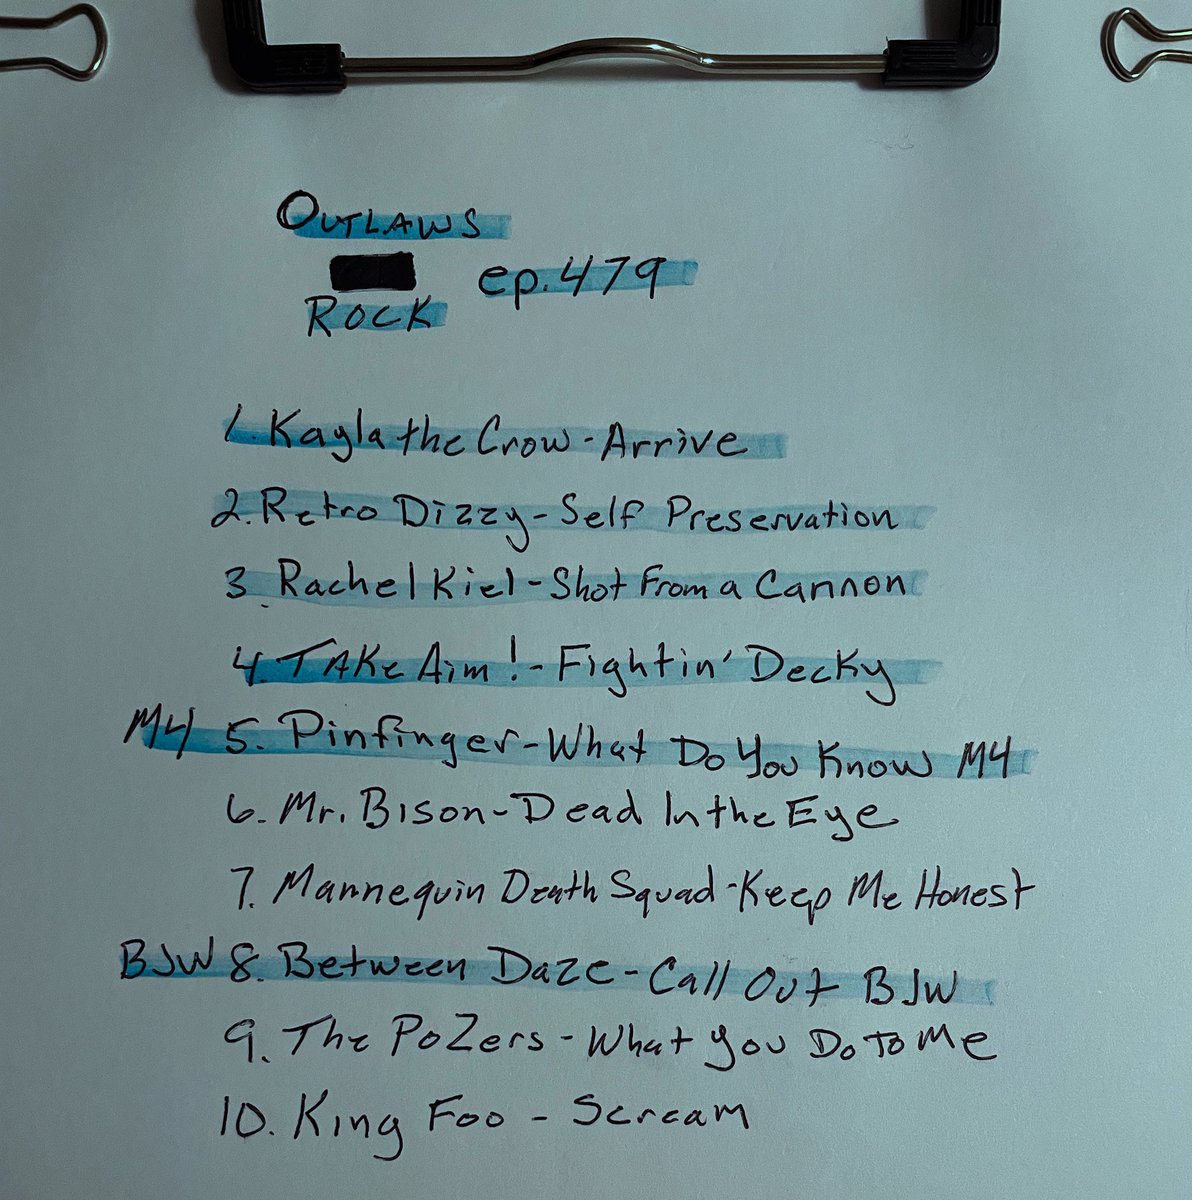 OUTLAWS
ep. 479
ROCK
1. Kayla the Crow - Arrive
2. Retro Dizzy - Self Preservation
3. Rachel Kiel - Shot From a Cannon
4. TAKe Aim! - Fightin' Decky
M4 5. Pinfinger - What Do You Know M4
6. Mr. Bison - Dead In the Eye
7. Mannequin Death Squad - Keep Me Honest
BJW 8. Between Daze - Call Out BJW
9. The PoZers - What You Do To Me
10. King Foo - Scream